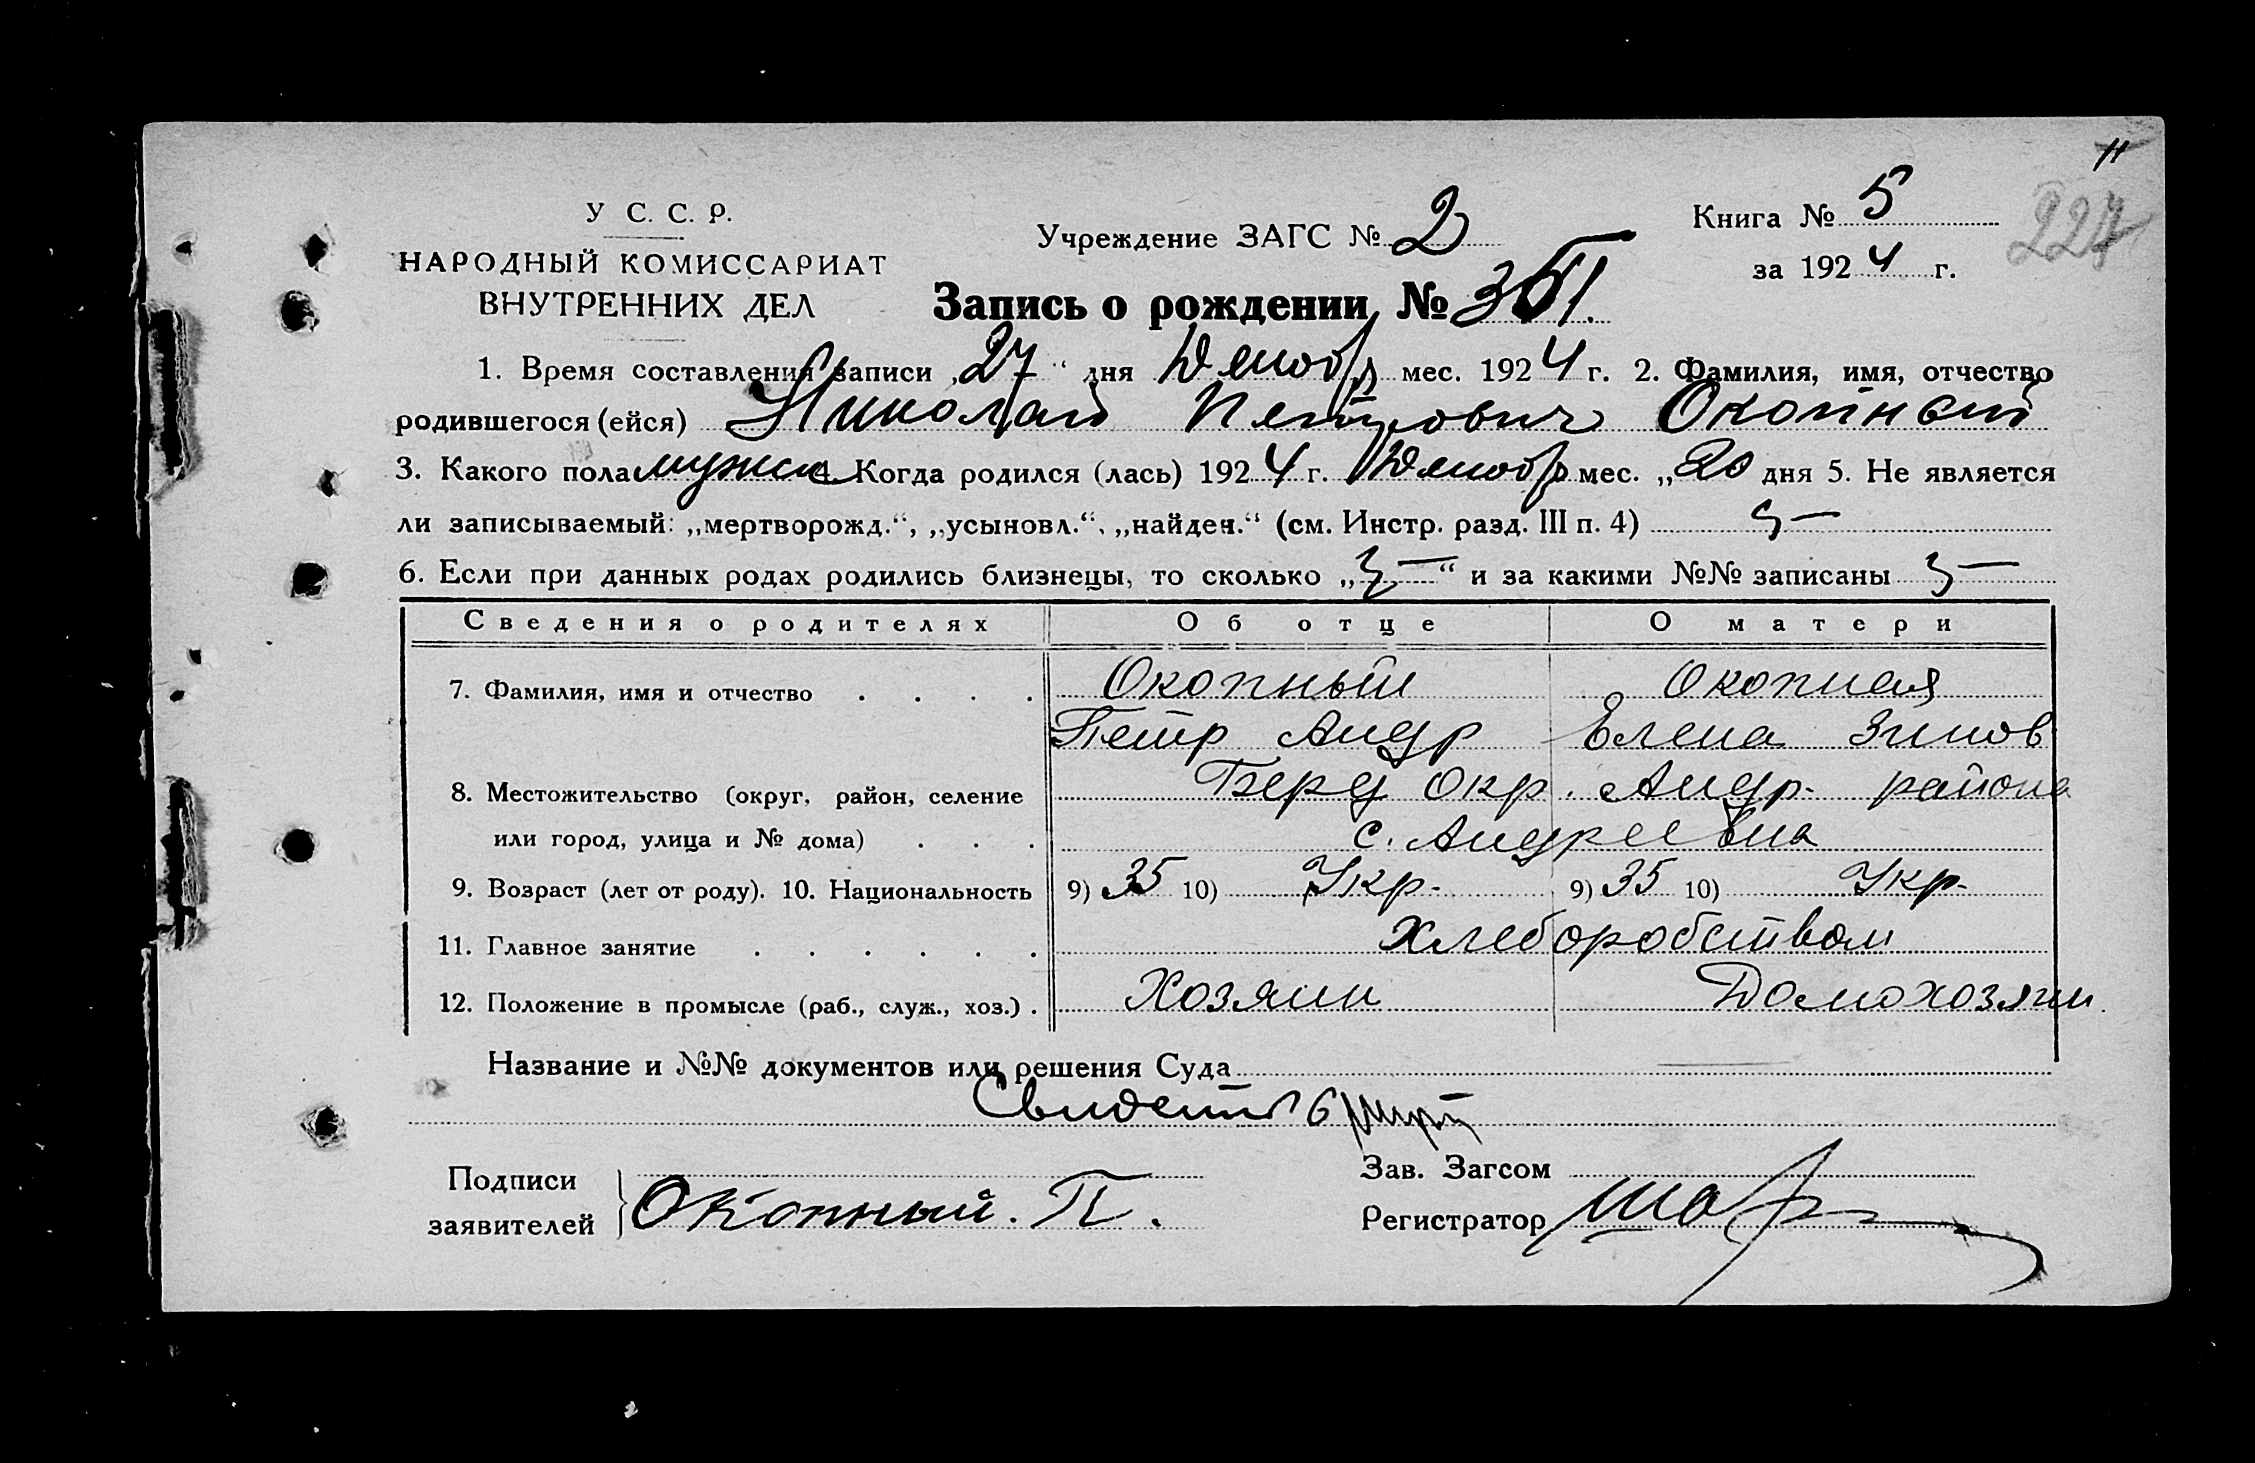 11
227
У С. С. Р.
НАРОДНЫЙ КОМИССАРИАТ
ВНУТРЕННИХ ДЕЛ
Учреждение ЗАГС № 2
Книга № 5
за 1924 г.
Запись о рождении № 351.
1. Время составления записи „27“ дня Декабр мес. 1924 г. 2. Фамилия, имя, отчество
родившегося (ейся) Николай Петрович Окопный
3. Какого пола мужск 4. Когда родился (лась) 1924 г. Декабр мес. „20 дня 5. Не является
ли записываемый: „мертворожд.“, „усыновл.“, „найден.“ (см. Инстр. разд. III п. 4)
6. Если при данных родах родились близнецы, то сколько „ “ и за какими №№ записаны
Сведения о родителях Об отце О матери
7. Фамилия, имя и отчество . . . . Окопный Окопная
Петр Андр Елена Зинов
8. Местожительство (округ, район, селение Берд Окр. Андр. района
или город, улица и № дома) . . . с. Андреевка
9. Возраст (лет от роду). 10. Национальность 9) 35 10) Укр. 9) 35 10) Укр.
11. Главное занятие . . . . . . Хлеборобством
12. Положение в промысле (раб., служ., хоз.) . Хозяин Домохозяин.
Название и №№ документов или решения Суда
Подписи
заявителей
Окопный. П.
Зав. Загсом
Регистратор